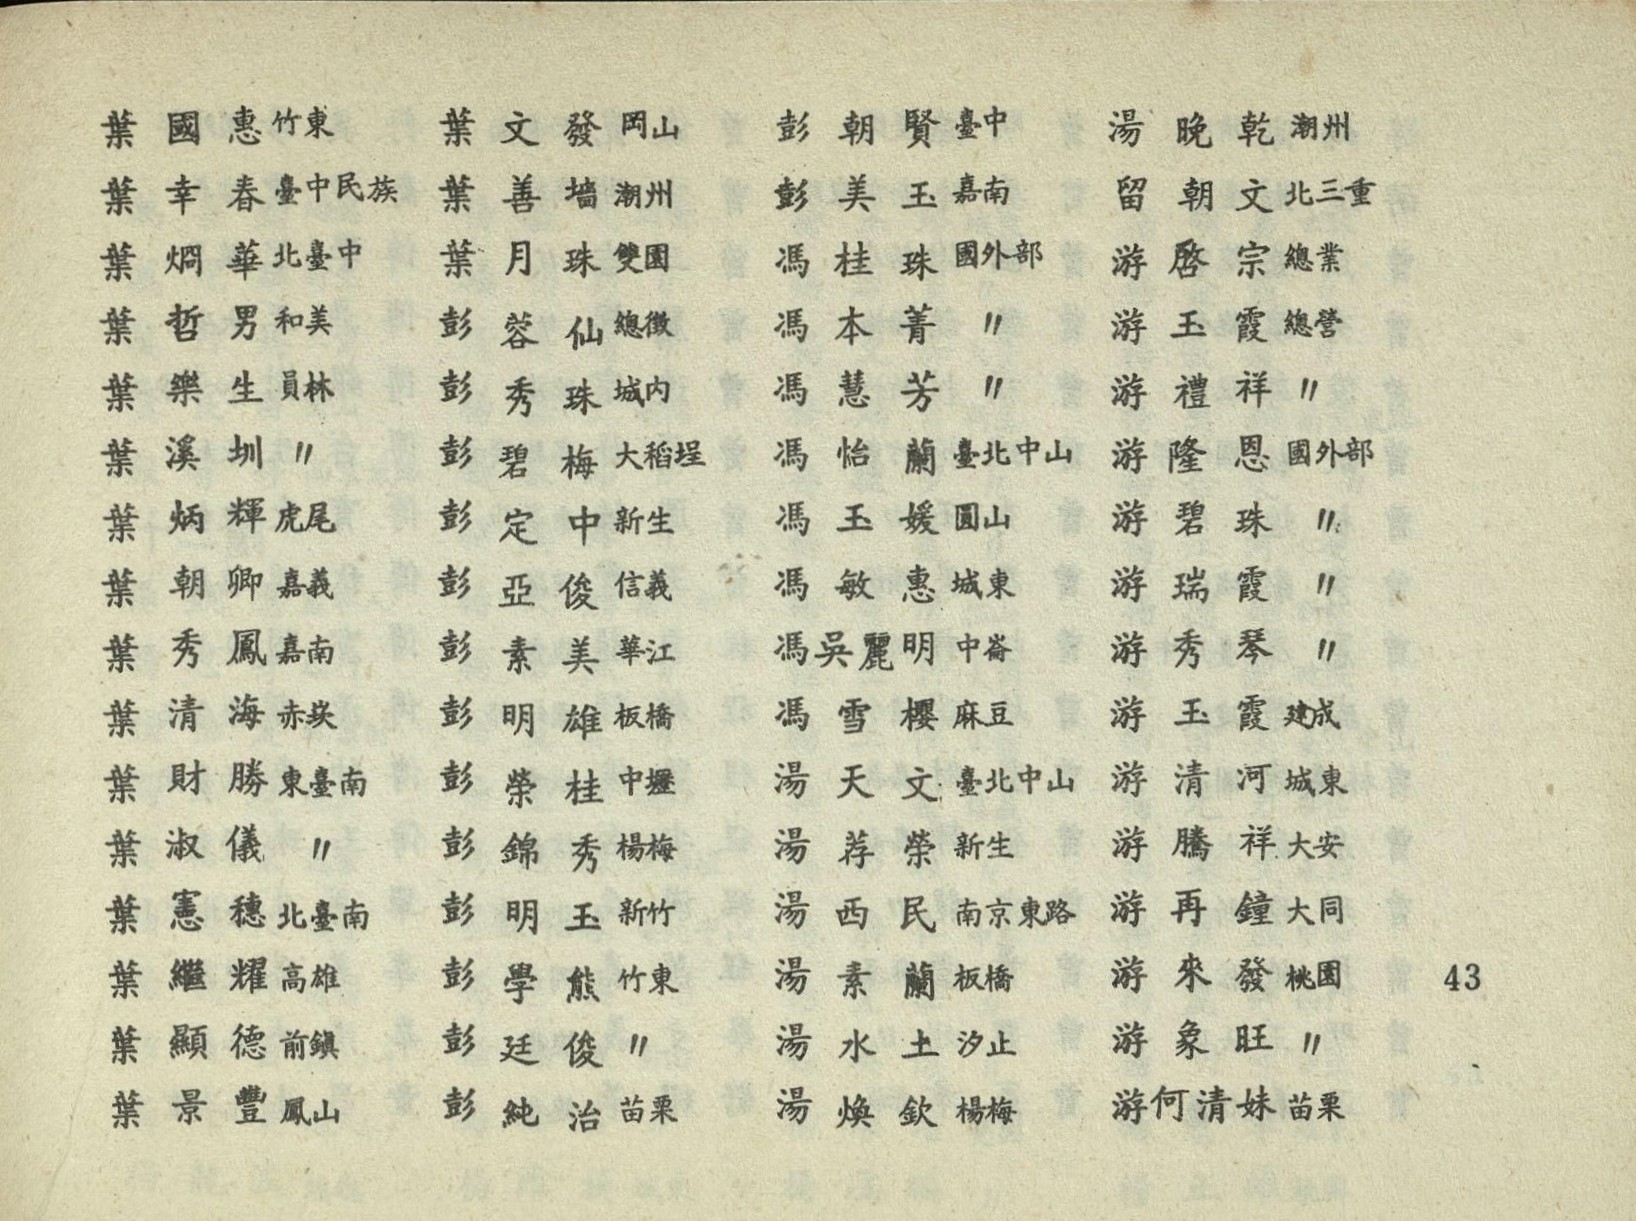 葉國惠竹東
葉幸春臺中民族
葉烱華北臺中
葉哲男和美
葉樂生員林
葉溪圳〃
葉炳輝虎尾
葉朝卿嘉義
葉秀鳳嘉南
葉清海赤崁
葉財勝東臺南
葉淑儀〃
葉憲穗北臺南
葉繼耀高雄
葉顯德前鎮
葉景豐鳳山
葉文發岡山
葉善墻潮州
葉月珠雙園
彭蓉仙總徵
彭秀珠城內
彭碧梅大稻埕
彭定中新生
彭亞俊信義
彭素美華江
彭明雄板橋
彭榮桂中壢
彭錦秀楊梅
彭明玉新竹
彭學熊竹東
彭廷俊〃
彭純治苗栗
彭朝賢臺中
彭美玉嘉南
馮桂珠國外部
馮本菁〃
馮慧芳〃
馮怡蘭臺北中山
馮玉媛圓山
馮敏惠城東
馮吳麗明中崙
馮雪櫻麻豆
湯天文臺北中山
湯荐榮新生
湯西民南京東路
湯素蘭板橋
湯水土汐止
湯煥欽楊梅
湯晚乾潮州
留朝文北三重
游啓宗總業
游玉霞總營
游禮祥〃
游隆恩國外部
游碧珠〃
游瑞霞〃
游秀琴〃
游玉霞建成
游清河城東
游騰祥大安
游再鐘大同
游來發桃園
游象旺〃
游何清妹苗栗
43